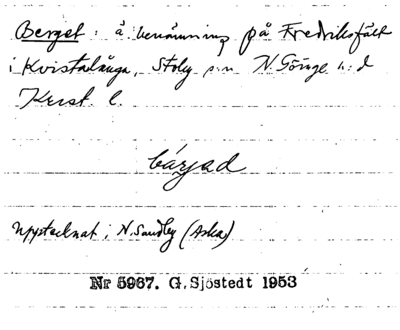 Berget : å benämning på Fredriksfält
i Kvistalånga, Stoby sn N. Göinge h:d
Krist. l.
bárjad
Upptecknat i N. Sandby (Aska)
Nr 5967. G. Sjöstedt 1953